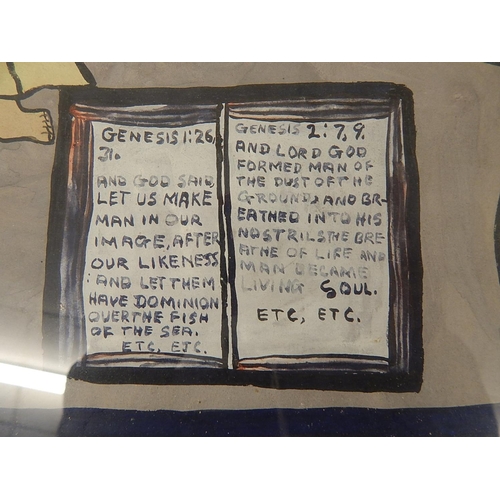 GENESIS 1:26,
31.
AND GOD SAID
LET US MAKE
MAN IN OUR
IMAGE, AFTER
OUR LIKENESS
: AND LET THEM
HAVE DOMINION
OVERTHE FISH
OF THE SEA.
ETC, ETC.
GENESIS 2:7,9.
AND LORD GOD
FORMED MAN OF
THE DUST OFT HE
GROUND, AND BR-
EATHED INTO HIS
NOSTRILS THE BRE-
ATHE OF LIFE AND
MAN BECAME
LIVING SOUL.
ETC, ETC.